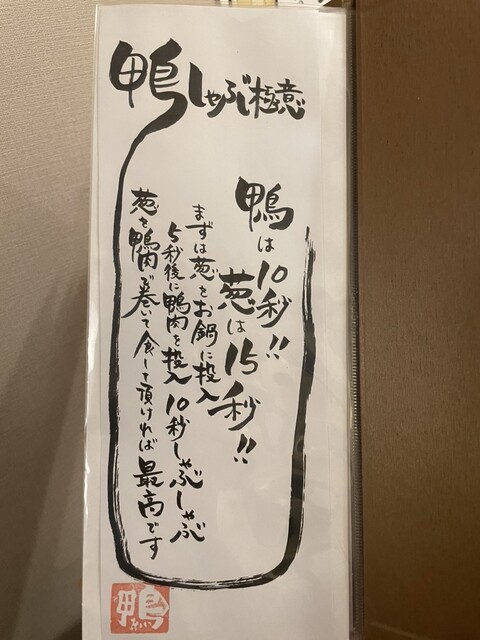 鴨しゃぶ極意
鴨は10秒!!
葱は15秒!!
まずは葱をお鍋に投入
5秒後に鴨肉を投入 10秒しゃぶしゃぶ
葱を鴨肉で巻いて食して頂ければ最高です
鴨